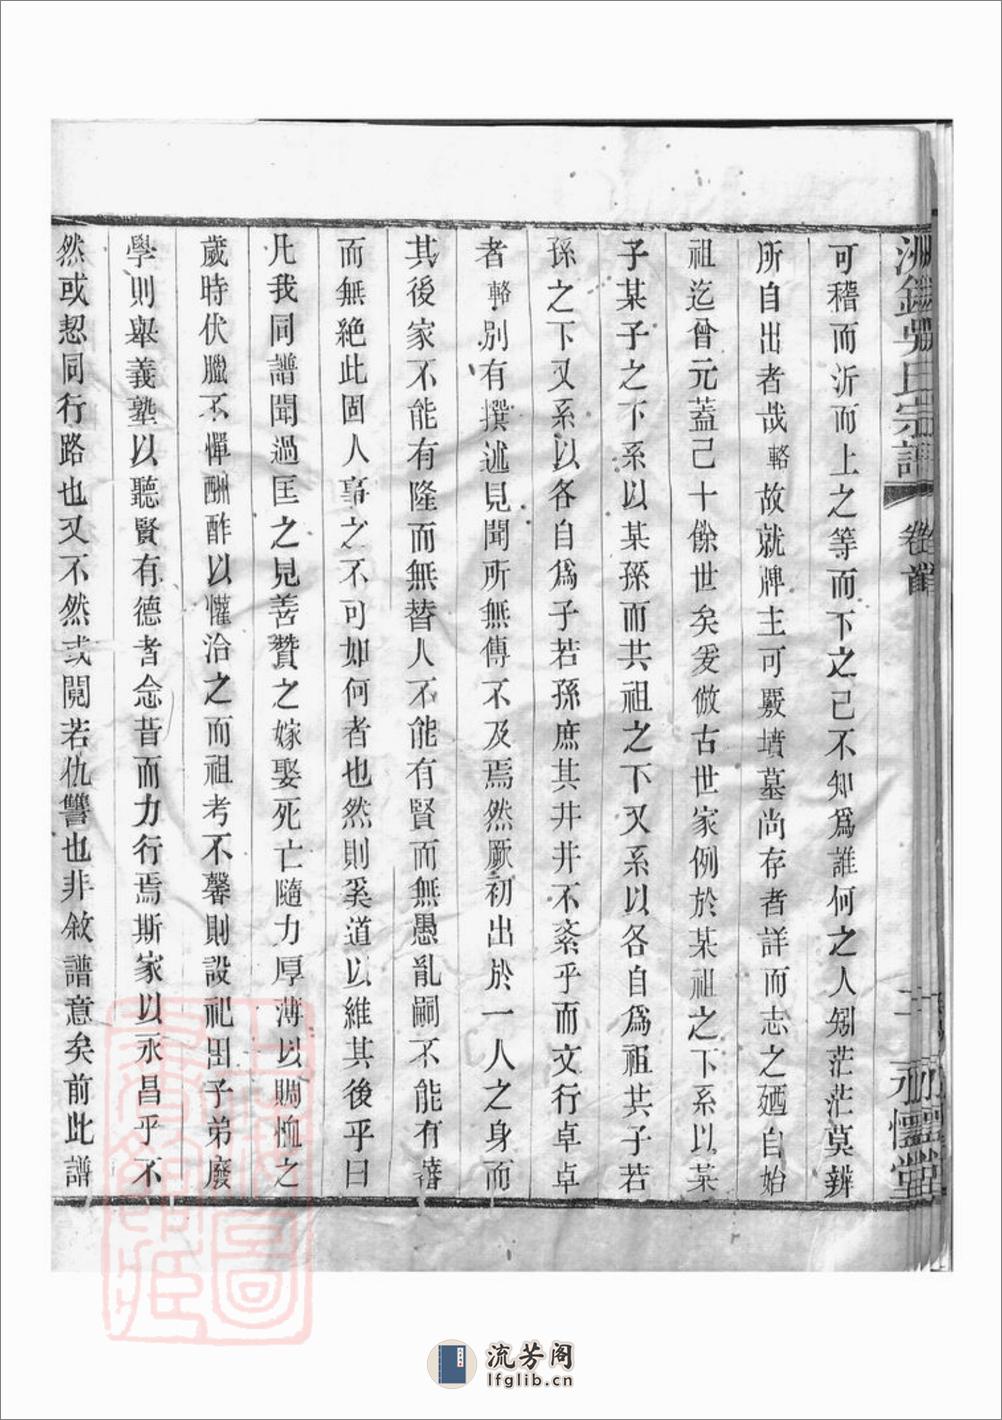 可稽而沂而上之等而下之己不知爲誰何之人矧茫茫莫辨
所自出者哉輅故就牌主可覈墳墓尚存者詳而志之廼自始
祖迄曾元蓋己十餘世矣爰倣古世家例於某祖之下系以某
子某子之下系以某孫而共祖之下又系以各自爲祖共子若
孫之下又系以各自爲子若孫庶其井井不紊乎而文行卓卓
者輅別有撰述見聞所無傳不及焉然厥初出於一人之身而
其後家不能有隆而無替人不能有賢而無愚亂嗣不能有蕃
而無絶此固人事之不可如何者也然則奚道以維其後乎曰
凡我同譜聞過匡之見善贊之嫁娶死亡隨力厚薄以賙恤之
歲時伏臘不憚酬酢以懽洽之而祖考不馨則設祀田子弟廢
學則舉義塾以聽賢有德者念昔而力行焉斯家以永昌乎不
然或恝同行路也又不然或鬩若仇讐也非敘譜意矣前此譜
氏宗譜
卷首
二
永懷堂
流芳阁
lfglib.cn